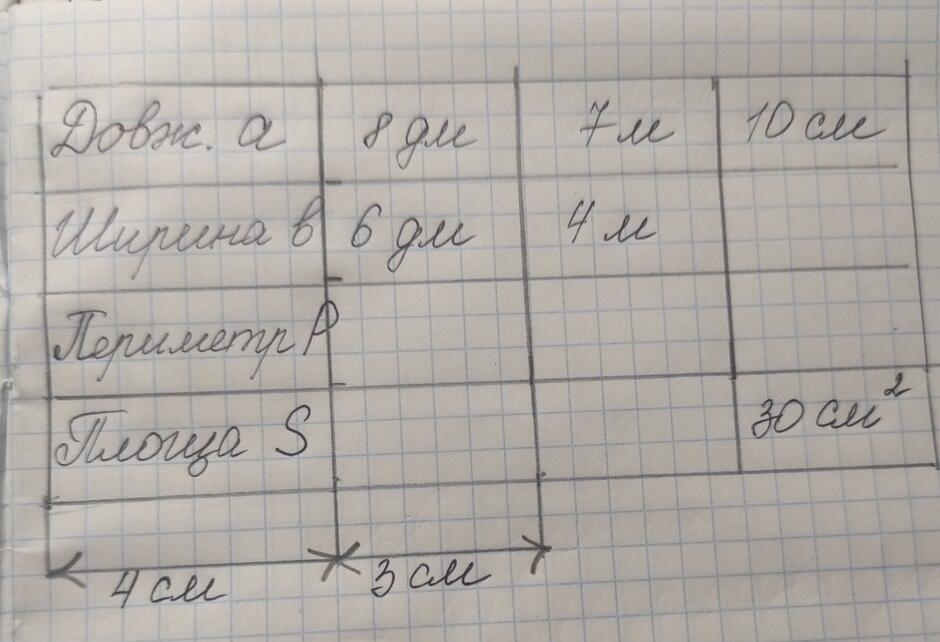 Довж. а 8 дм 7 м 10 см
Ширина в 6 дм 4 м
Периметр Р
Площа S 30 см²
4 см 3 см